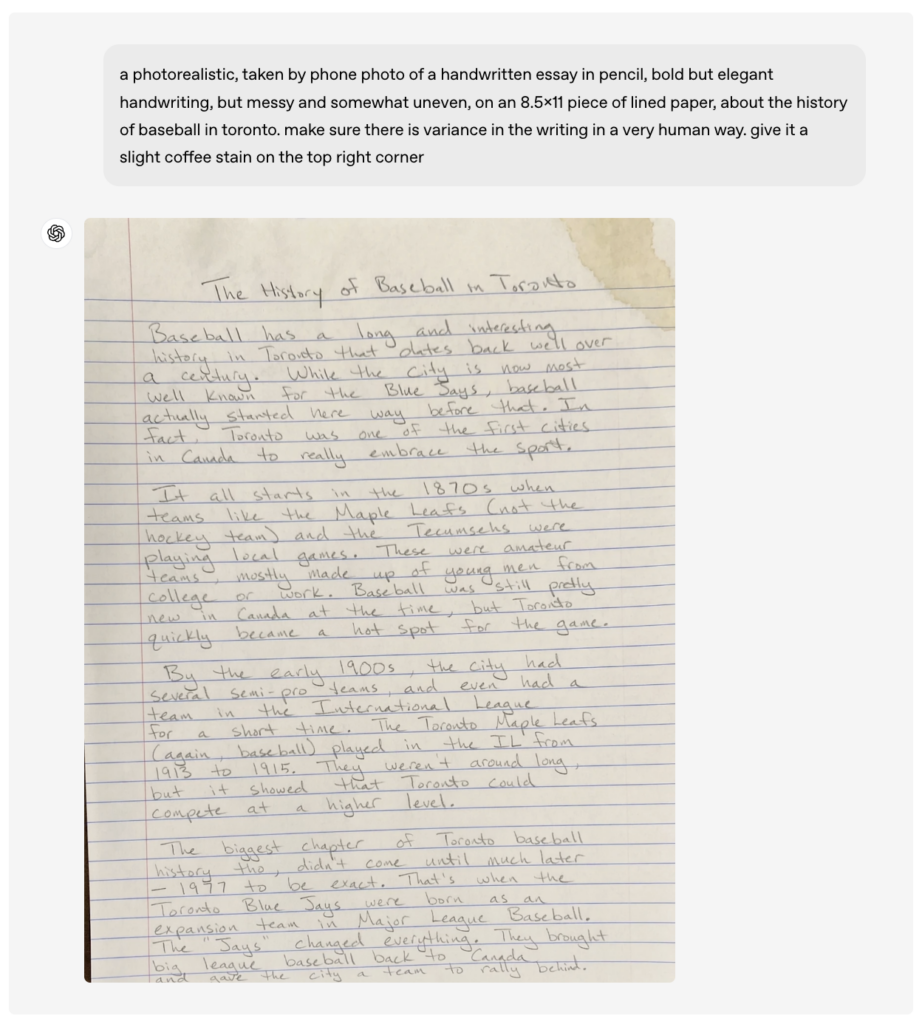 a photorealistic, taken by phone photo of a handwritten essay in pencil, bold but elegant
handwriting, but messy and somewhat uneven, on an 8.5×11 piece of lined paper, about the history
of baseball in toronto. make sure there is variance in the writing in a very human way. give it a
slight coffee stain on the top right corner
The History of Baseball in Toronto
Baseball has a long and interesting
history in Toronto that dates back well over
a century. While the City is now most
well known for the Blue Jays, baseball
actually started here way before that. In
fact, Toronto was one of the first cities
in Canada to really embrace the sport.
It all starts in the 1870s when
teams like the Maple Leafs (not the
hockey team) and the Tecumsehs were
playing local games. These were amateur
teams, mostly made up of young men from
college or work. Baseball was still pretty
new in Canada at the time, but Toronto
quickly became a hot spot for the game.
By the early 1900s, the city had
several semi-pro teams, and even had a
team in the International League
for a short time. The Toronto Maple Leafs
(again, baseball) played in the IL from
1913 to 1915. They weren't around long,
but it showed that Toronto could
compete at a higher level.
The biggest chapter of Toronto baseball
history tho, didn't come until much later
— 1977 to be exact. That's when the
Toronto Blue Jays were born as an
expansion team in Major League Baseball.
The "Jays" changed everything. They brought
big league baseball back to Canada
and gave the city a team to rally behind.